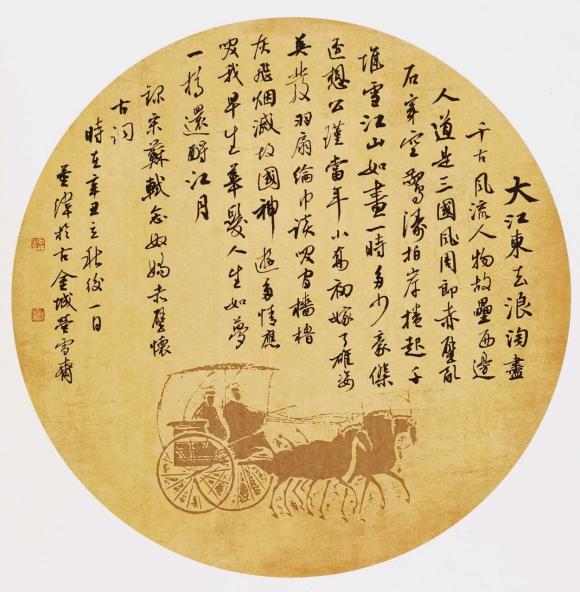 大江東去浪淘盡
千古風流人物故壘西邊
人道是三國風周郎赤壁亂
石穿空驚濤拍岸捲起千
堆雪江山如畫一時多少豪傑
遥想公瑾當年小喬初嫁了雄姿
英發羽扇綸巾談笑间檣櫓
灰飛烟滅故國神遊多情應
笑我早生華髮人生如夢
一樽還酹江月
錄宋蘇軾念奴嬌赤壁懷
古詞
時在辛丑立秋後一日
於古金城雪齋